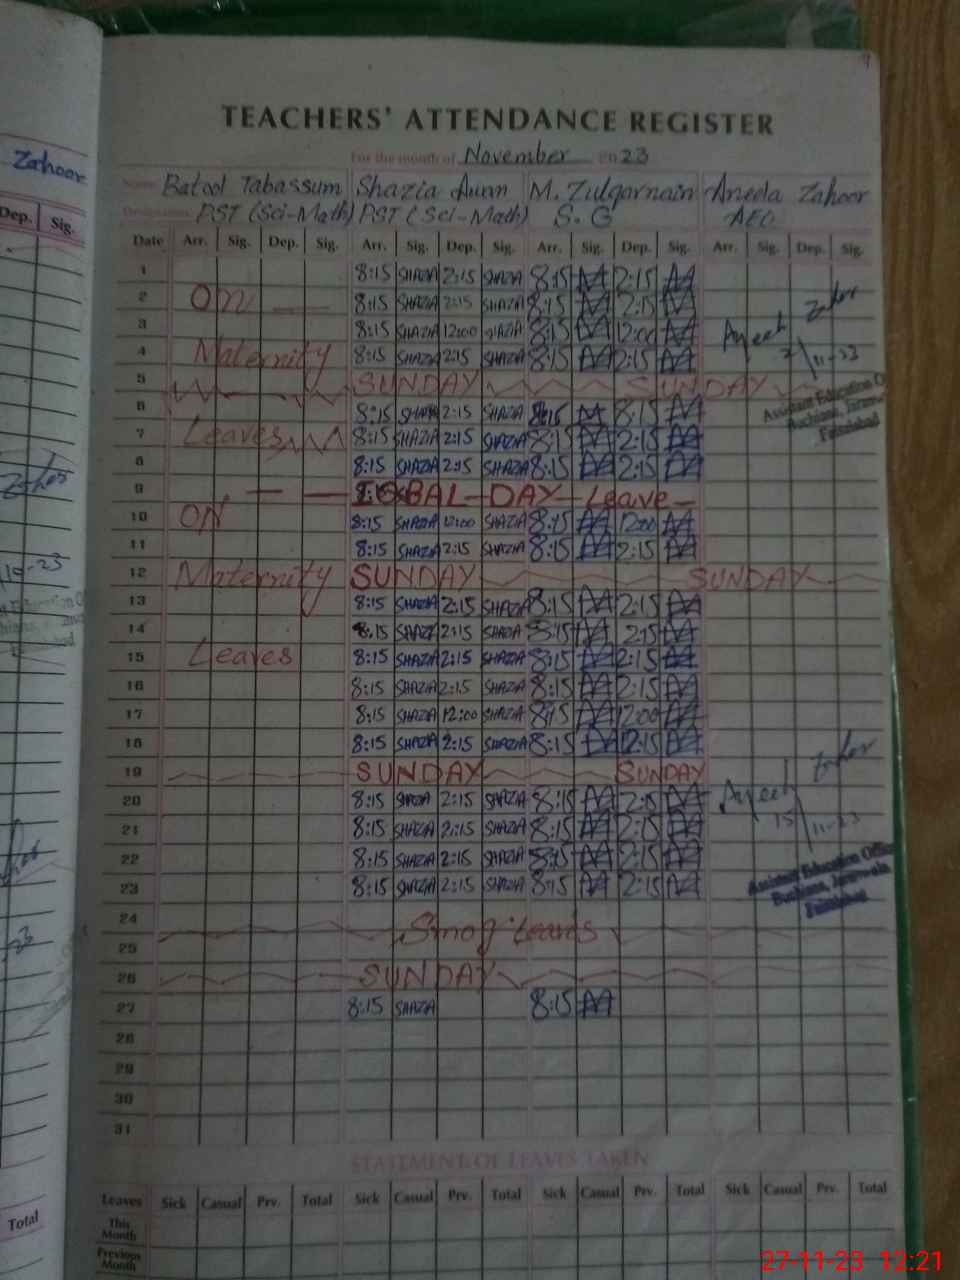 TEACHERS' ATTENDANCE REGISTER
For the month of November 2023
Zahoor
Name Batool Tabassum Shazia M. Zulqarnain Aneela Zahoor
Designation PST (Sci-Math) PST (Sci-Math) S. G AEO
Dep. Sig.
Date Arr. Sig. Dep. Sig. Arr. Sig. Dep. Sig. Arr. Sig. Dep. Sig. Arr. Sig. Dep. Sig.
1 8:15 SHAZIA 2:15 SHAZIA 8:15 2:15
2 ON 8:15 SHAZIA 2:15 SHAZIA 8:15 2:15
3 8:15 SHAZIA 12:00 SHAZIA 8:15 12:00
4 Maternity 8:15 SHAZIA 2:15 SHAZIA 8:15 2:15
7-11-23
5 SUNDAY SUNDAY
Assistant Education O
6 8:15 SHAZIA 2:15 SHAZIA 8:15 8:15
Buchiana, Jaranwala,
Faisalabad
7 Leaves 8:15 SHAZIA 2:15 SHAZIA 8:15 2:15
8 8:15 SHAZIA 2:15 SHAZIA 8:15 2:15
9 IQBAL DAY Leave
10 ON 8:15 SHAZIA 12:00 SHAZIA 8:15 12:00
11 8:15 SHAZIA 2:15 SHAZIA 8:15 2:15
12 Maternity SUNDAY SUNDAY
13 8:15 SHAZIA 2:15 SHAZIA 8:15 2:15
14 8:15 SHAZIA 2:15 SHAZIA 8:15 2:15
15 Leaves 8:15 SHAZIA 2:15 SHAZIA 8:15 2:15
16 8:15 SHAZIA 2:15 SHAZIA 8:15 2:15
17 8:15 SHAZIA 12:00 SHAZIA 8:15 12:00
18 8:15 SHAZIA 2:15 SHAZIA 8:15 2:15
19 SUNDAY SUNDAY
20 8:15 SHAZIA 2:15 SHAZIA 8:15 2:15
21 8:15 SHAZIA 2:15 SHAZIA 8:15 2:15
15 11-23
22 8:15 SHAZIA 2:15 SHAZIA 8:15 2:15
Assistant Education Office
23 8:15 SHAZIA 2:15 SHAZIA 8:15 2:15
Buchiana, Jaranwala,
Faisalabad
24 Smog Leaves
25
26 SUNDAY
27 8:15 SHAZIA 8:15
28
29
30
31
STATEMENT OF LEAVES TAKEN
Leaves Sick Casual Prv. Total Sick Casual Prv. Total Sick Casual Prv. Total Sick Casual Prv. Total
Total
This Month
Previous Month
27-11-23 12:21